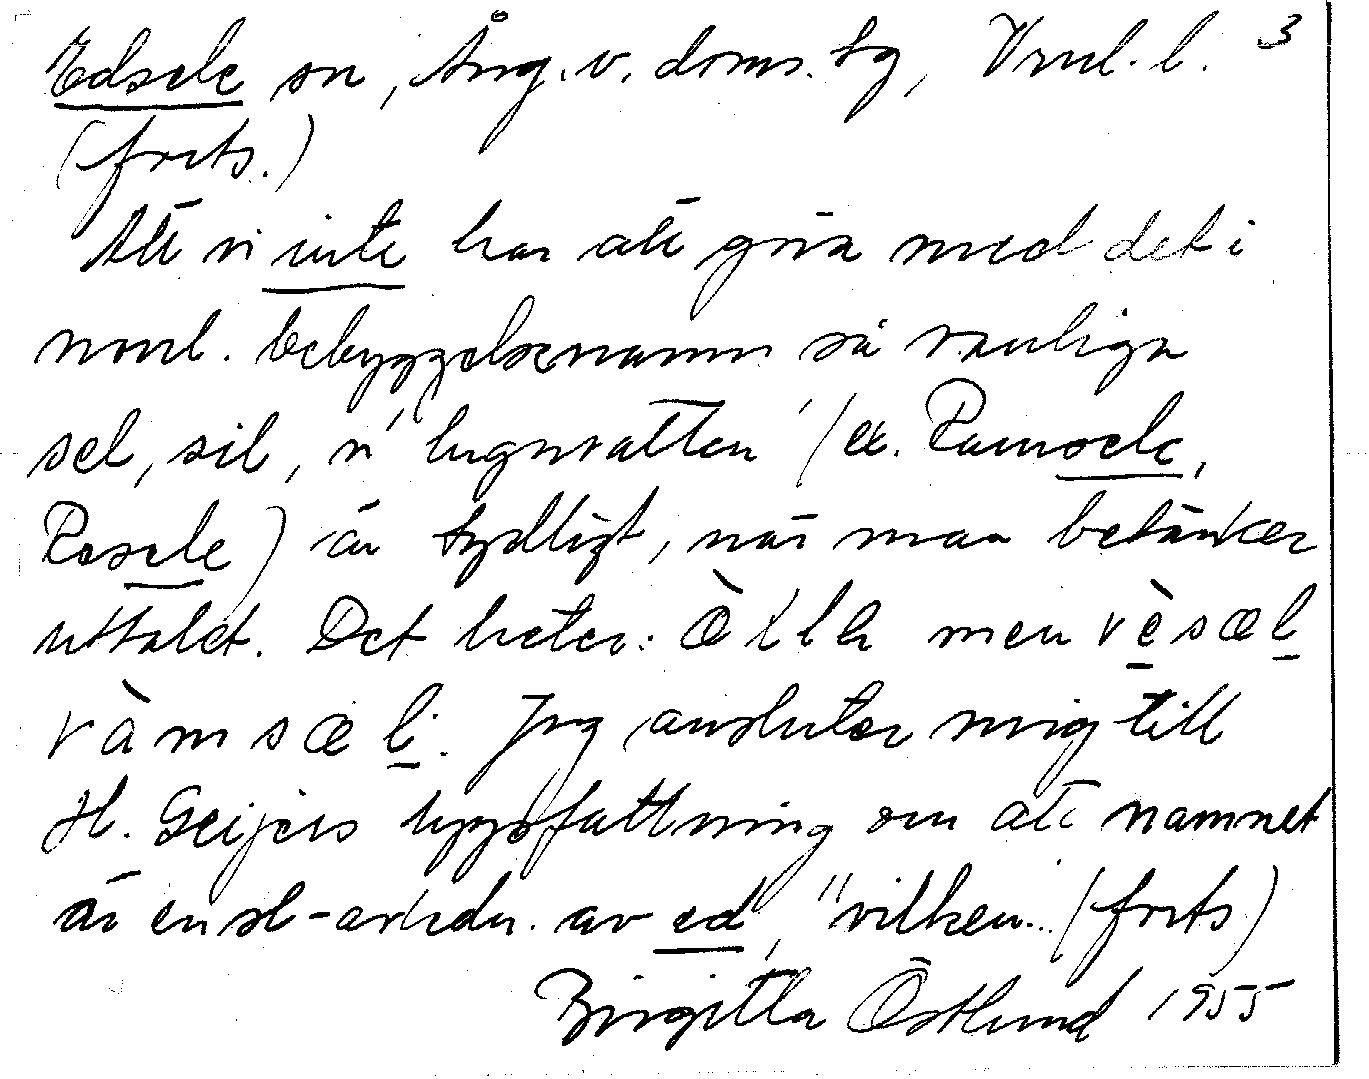 Edsele sn, Ång. v. doms. sg, Vrnl. l. 3
(forts.)
Att vi inte har att göra med det i
norrl. bebyggelsenamn så vanliga
sel, sil, n 'lugnvatten' (ex. Ramsele,
Resele) är tydligt, när man betänker
uttalet. Det heter: æ̀lla men rèsæl
ràmsæl. Jag ansluter mig till
H. Geijers uppfattning om att namnet
är en sl-avledn. av ed, "vilken.. (forts)
Birgitta Östlund 1955